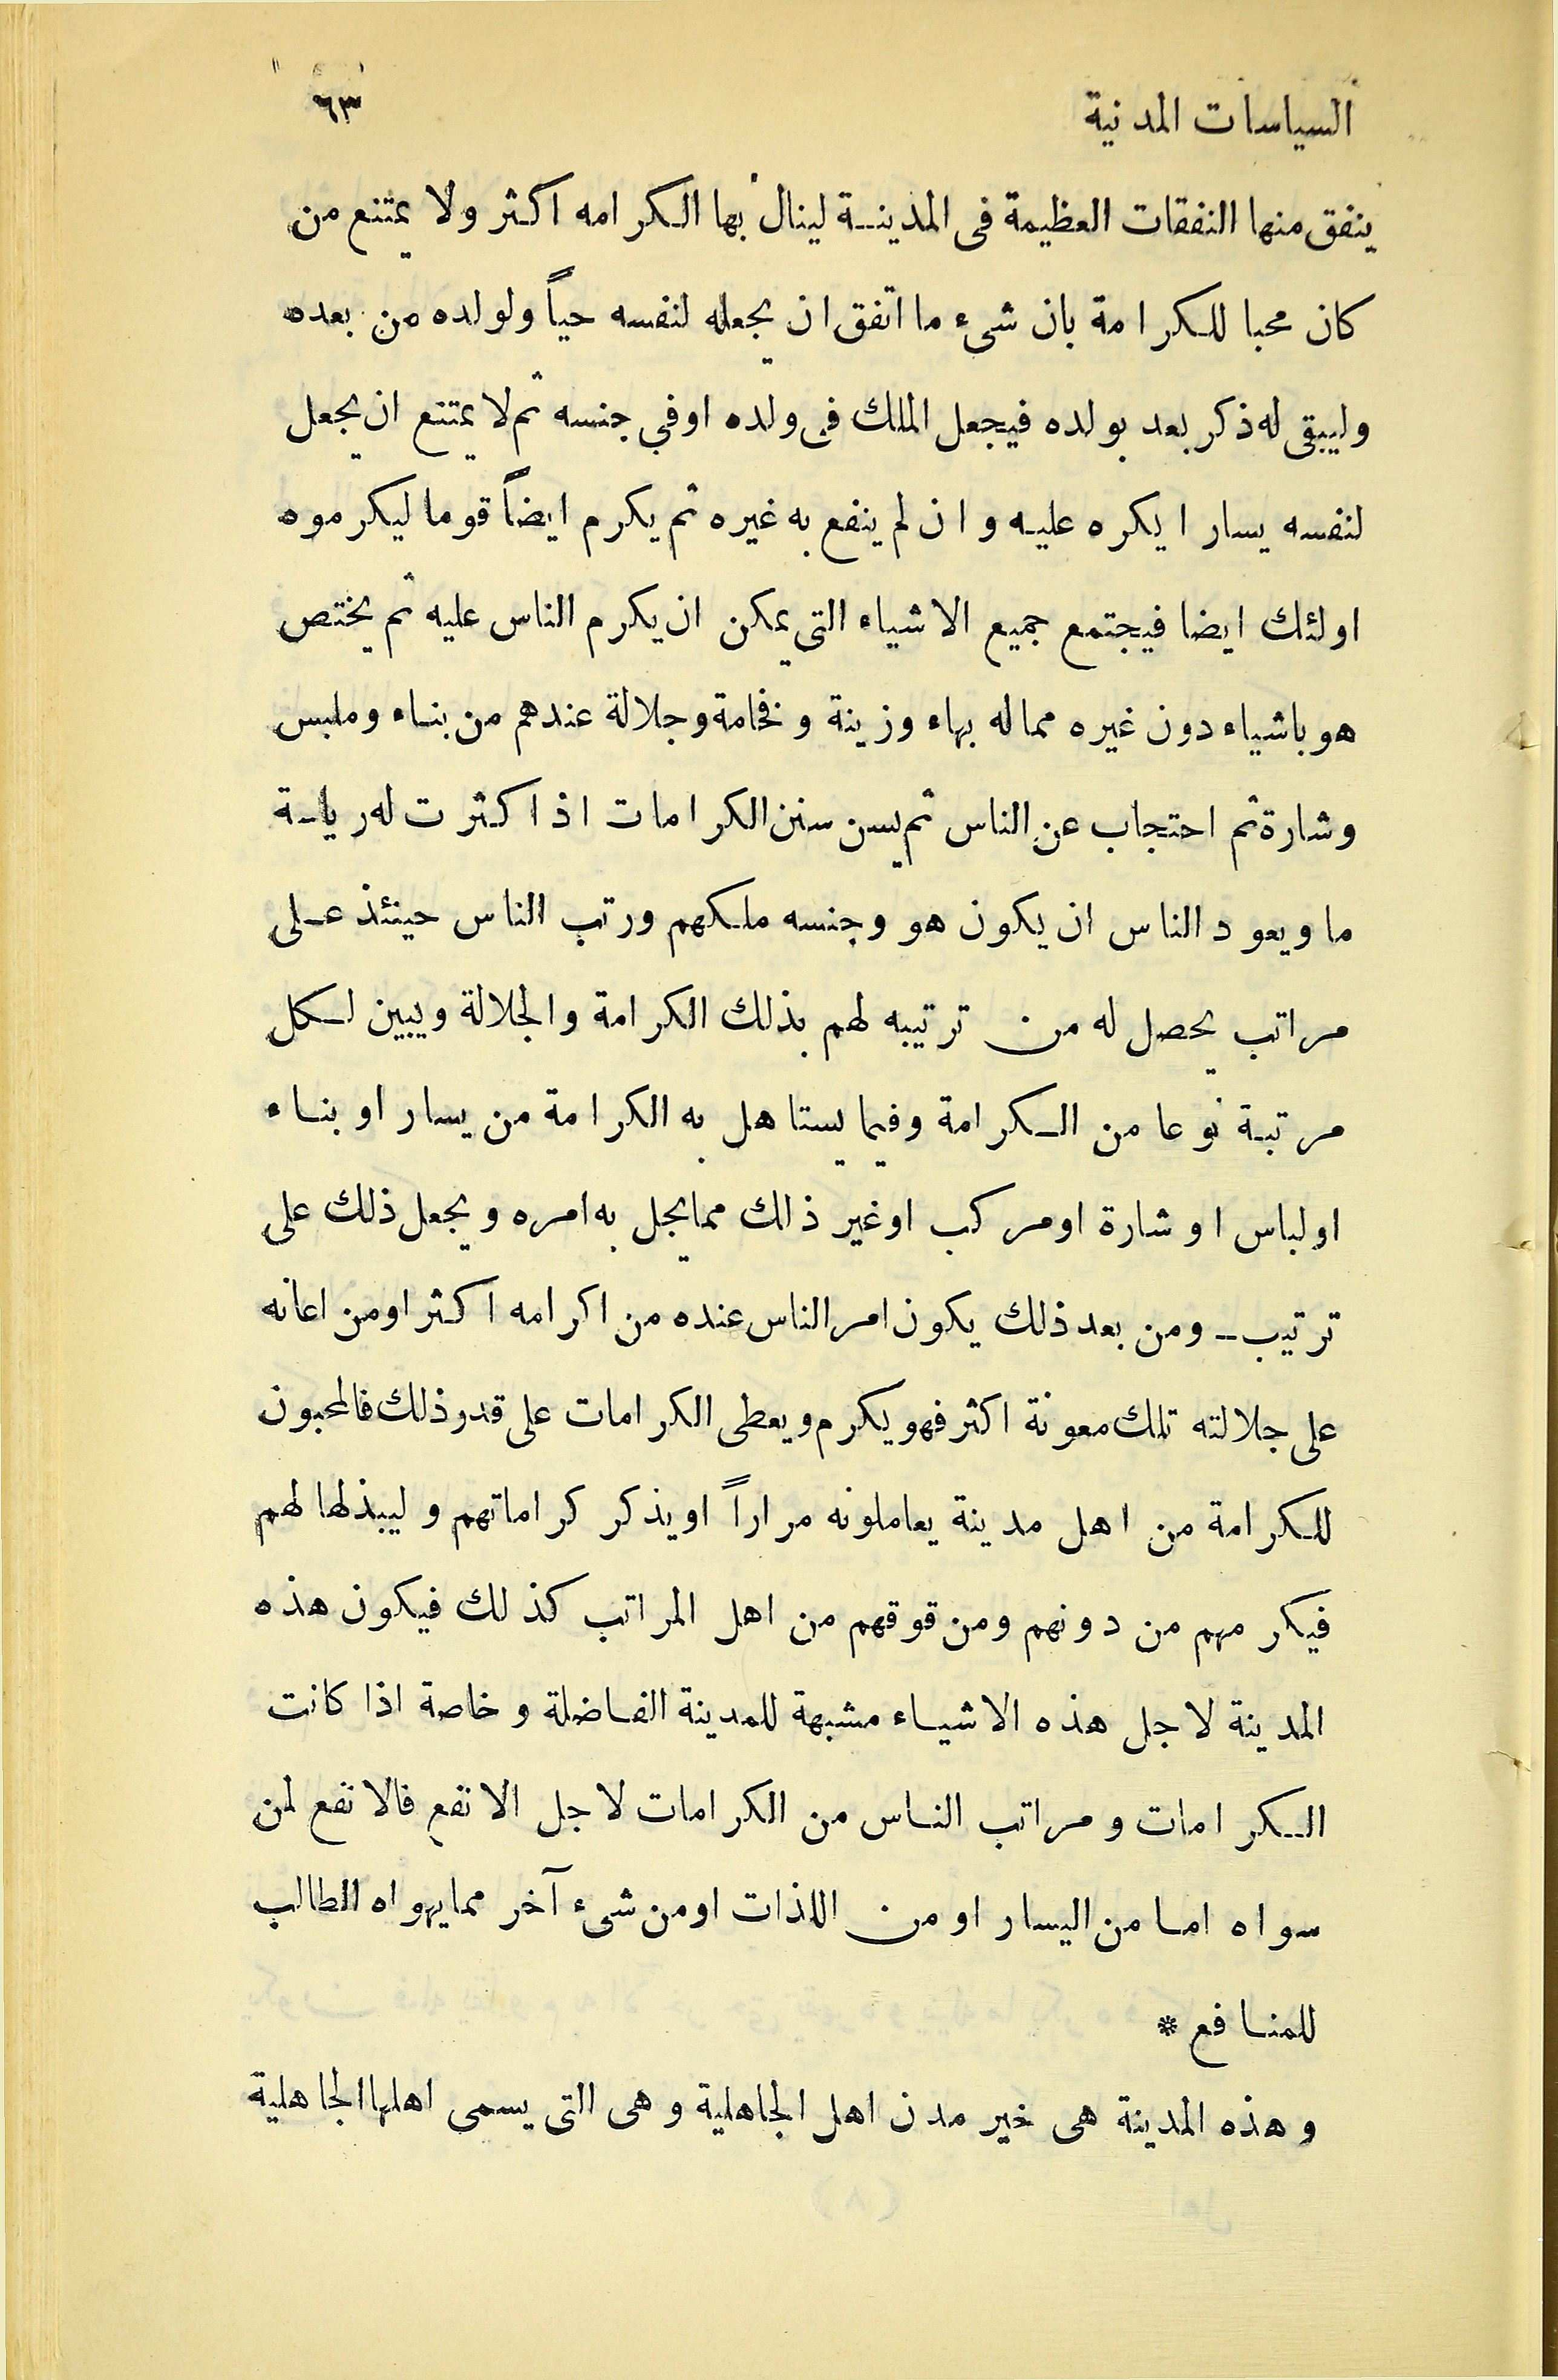 السياسات المدنية ٦٣
ينفق منها النفقات العظيمة فى المدينة لينال بها الكرامه اكثر ولا يمتنع من
كان محبا للكرامة بان شىء ما اتفق ان يجعله لنفسه حياً ولولده من بعده
وليبقى له ذكر بعد بولده فيجعل الملك فى ولده اوفي جنسه ثم لا يمتنع ان يجعل
لنفسه يسارا يكره عليه وان لم ينفع به غيره ثم يكرم ايضاً قوما ليكرموه
اولئك ايضا فيجتمع جميع الاشياء التى يمكن ان يكرم الناس عليه ثم يختص
هو باشياء دون غيره مما له بهاء وزينة وفخامة وجلالة عندهم من بناء وملبس
وشارة ثم احتجاب عن الناس ثم يسن سنن الكرامات اذا كثرت له رياسة
ما ويعود الناس ان يكون هو وجنسه ملكهم ورتب الناس حينئذ على
مراتب يحصل له من ترتيبه لهم بذلك الكرامة والجلالة ويبين لكل
مرتبة نوعا من الكرامة وفيما يستاهل به الكرامة من يسار او بناء
اولباس او شارة اومركب اوغير ذلك مما يجل به امره ويجعل ذلك على
ترتيب ــ ومن بعد ذلك يكون امر الناس عنده من اكرامه اكثر اومن اعانه
على جلالته تلك معونة اكثر فهو يكرم ويعطى الكرامات على قدر ذلك فالمحبون
للكرامة من اهل مدينة يعاملونه مراراً اويذكر كراماتهم وليبذلها لهم
فيكرمهم من دونهم ومن قوقهم من اهل المراتب كذلك فيكون هذه
المدينة لاجل هذه الاشياء مشبهة للمدينة الفاضلة وخاصة اذا كانت
الكرامات ومراتب الناس من الكرامات لاجل الانفع فالانفع لمن
سواه اما من اليسار او من اللذات اومن شىء آخر مما يهواه الطالب
للمنافع *
وهذه المدينة هى خير مدن اهل الجاهلية وهى التى يسمى اهلها الجاهلية